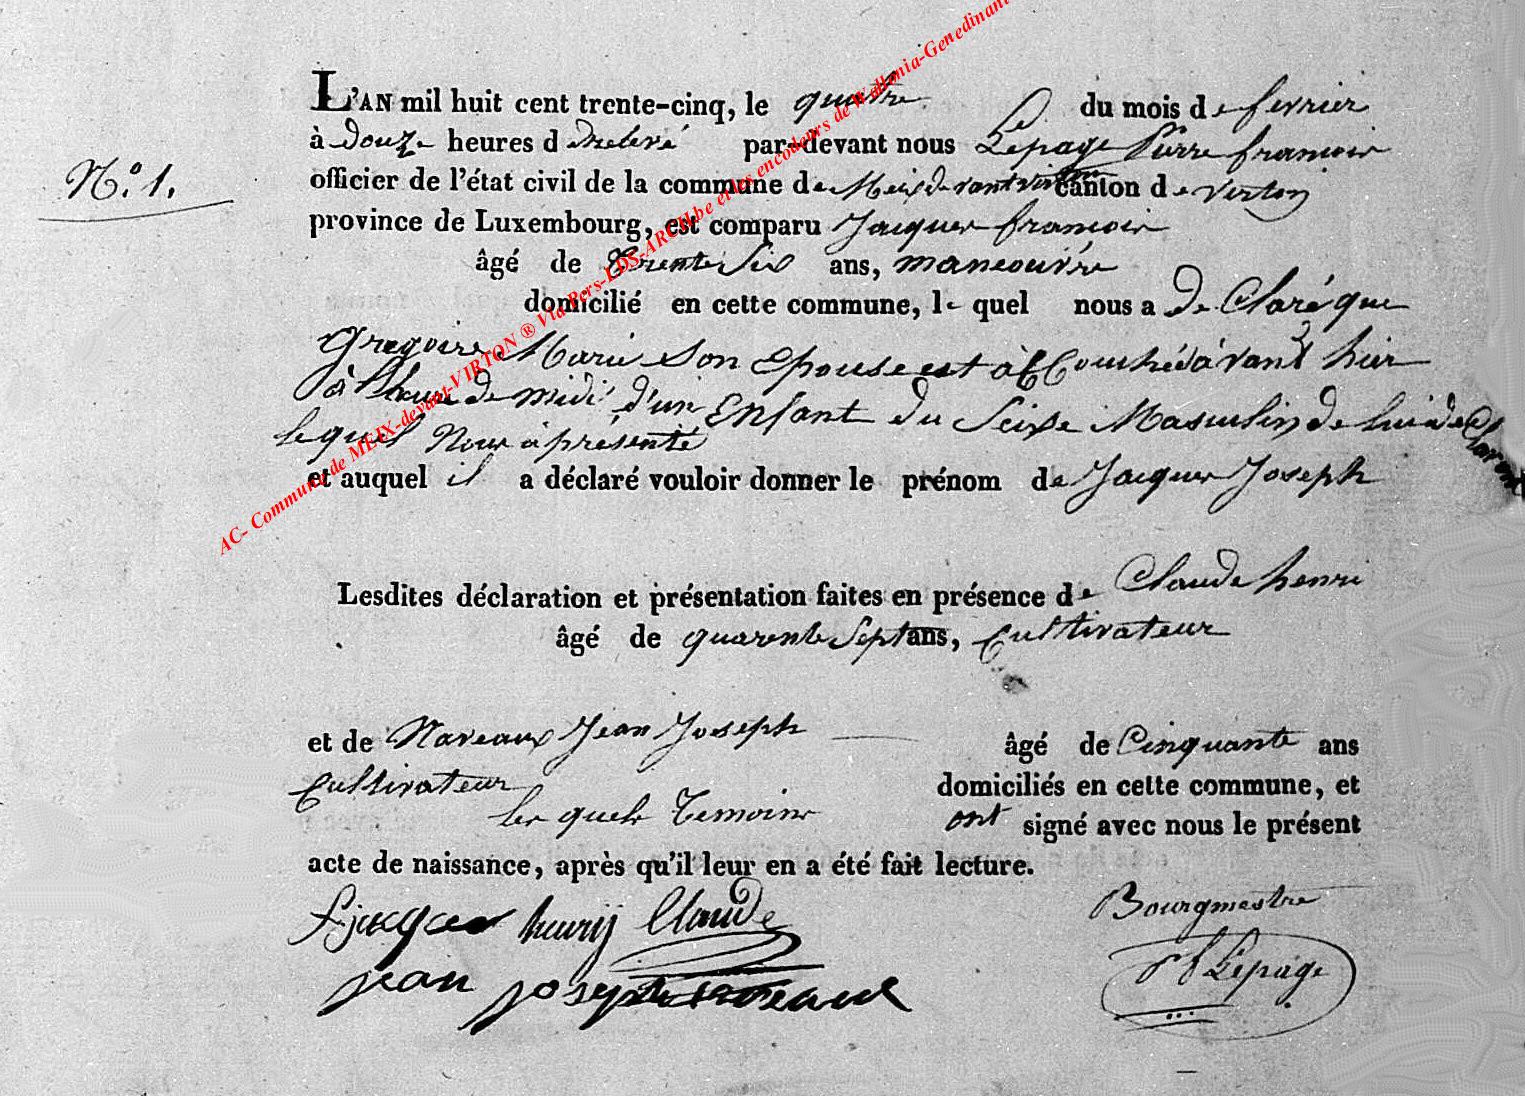 N.o 1.
L'AN mil huit cent trente-cinq, le quatre du mois de fevrier
à douze heures d par-devant nous Lepage Pierre francois
officier de l'état civil de la commune de Meix devant virton canton de virton
province de Luxembourg, est comparu Jacques francois
âgé de trente Six ans, maneouvre
domicilié en cette commune, le quel nous a De Claré que
Gregoire Marie Son Epouse est àCCouchéé avant hier
à l'heure de midi d'un Enfant du Seixe Masculin de lui a de Claront
lequel Nous à présenté
et auquel il a déclaré vouloir donner le prénom de Jacques Joseph
Lesdites déclaration et présentation faites en présence de Claude henri
âgé de quarente Sept ans, Cultivateur
et de Naveaux Jean Joseph âgé de Cinquante ans
Cultivateur domiciliés en cette commune, et
les quels Temoins ont signé avec nous le présent
acte de naissance, après qu'il leur en a été fait lecture.
fjacques henrij Claude Bourgmestre
jean joseph naveaux Lepage
AC- Commune de MEIX-devant-VIRTON ® Via Pers-LDS-ARCH.be et les encodeurs de Wallonia-Genedinant